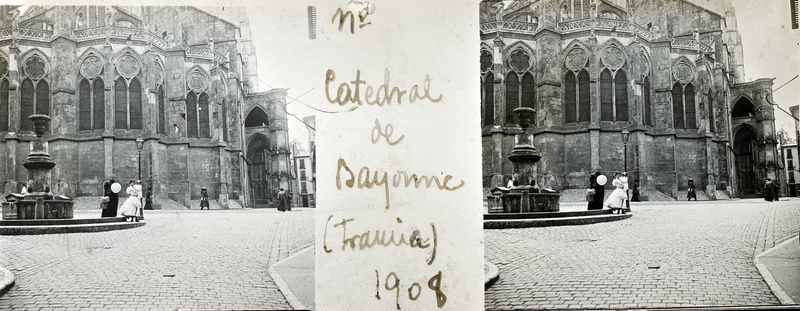 nº
Catedral
de
Bayonne
(Francia)
1908